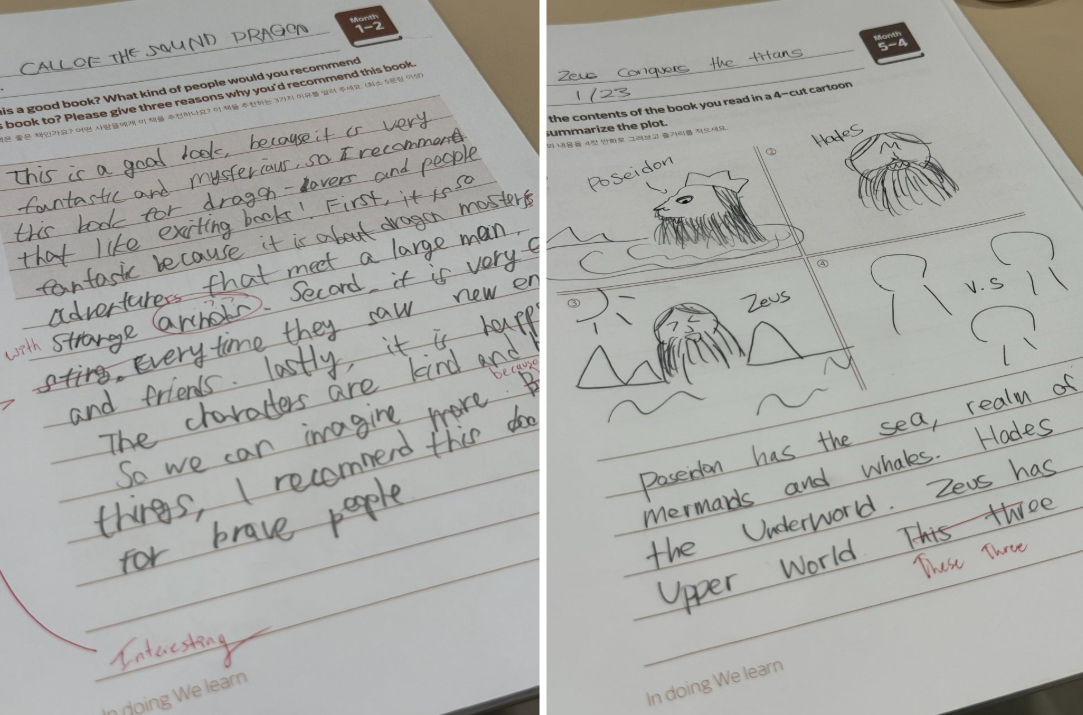 Month
1-2
CALL OF THE SOUND DRAGON
is a good book? What kind of people would you recommend
book to? Please give three reasons why you'd recommend this book.
This is a good book, because it is very
fantastic and mysterious. so I recommend
this book for dragon-lovers and people
that like exiting books! First, it is so
fantasic because it is about dragon masters
adventures that meet a large man,
with strange
Second, it is very
Every time they saw new
and friends. lastly, it is
The charatters are kind and
because
So we can imagine more.
things, I recomnend this
for brave people
Interesting
In doing We learn
Month
5-4
Zeus Conquers the titans
1/23
the contents of the book you read in a 4-cut cartoon
summarize the plot.
Poseidon
②
Hades
③
Zeus
④
v.s
Poseidon has the sea, realm of
mermaids and whales. Hades
the Underworld. Zeus has
Upper World. This three
These Three
In doing We learn